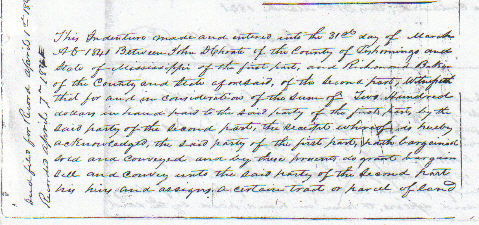 This Indenture made and entered into the 31st day of March
A D 1841 Between John D Choate of the County of Tishomingo and
State of Mississippi of the first part, and Richmond Baker
of the County and State aforesaid, of the second part, Witnesseth
that for and in consideration of the Sum of Two Hundred
dollars in hand paid to the said party of the first part, by the
said party of the second part, the receipt whereof is hereby
acknowledged, the said party of the first part, hath bargained
sold and Conveyed and by these presents do grant bargain
Sell and Convey unto the said party of the Second part
his heirs and assigns a certain tract or parcel of land
Deed filed for Record April 1st
Recorded April 7th